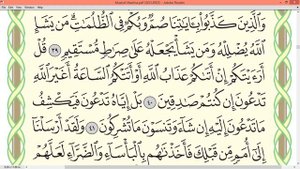 Mushaf Madina.pdf (SECURED) - Adobe Reader
File Edit View Window Help
وَٱلَّذِينَ كَذَّبُوا۟ بِـَٔايَـٰتِنَا صُمٌّ وَبُكْمٌ فِى ٱلظُّلُمَـٰتِ مَن يَشَإِ
ٱللَّهُ يُضْلِلْهُ وَمَن يَشَأْ يَجْعَلْهُ عَلَىٰ صِرَٰطٍ مُّسْتَقِيمٍ ٣٩ قُلْ
أَرَءَيْتَكُمْ إِنْ أَتَىٰكُمْ عَذَابُ ٱللَّهِ أَوْ أَتَتْكُمُ ٱلسَّاعَةُ أَغَيْرَ ٱللَّهِ
تَدْعُونَ إِن كُنتُمْ صَـٰدِقِينَ ٤٠ بَلْ إِيَّاهُ تَدْعُونَ فَيَكْشِفُ
مَا تَدْعُونَ إِلَيْهِ إِن شَآءَ وَتَنسَوْنَ مَا تُشْرِكُونَ ٤١ وَلَقَدْ أَرْسَلْنَآ
إِلَىٰٓ أُمَمٍ مِّن قَبْلِكَ فَأَخَذْنَـٰهُم بِٱلْبَأْسَآءِ وَٱلضَّرَّآءِ لَعَلَّهُمْ